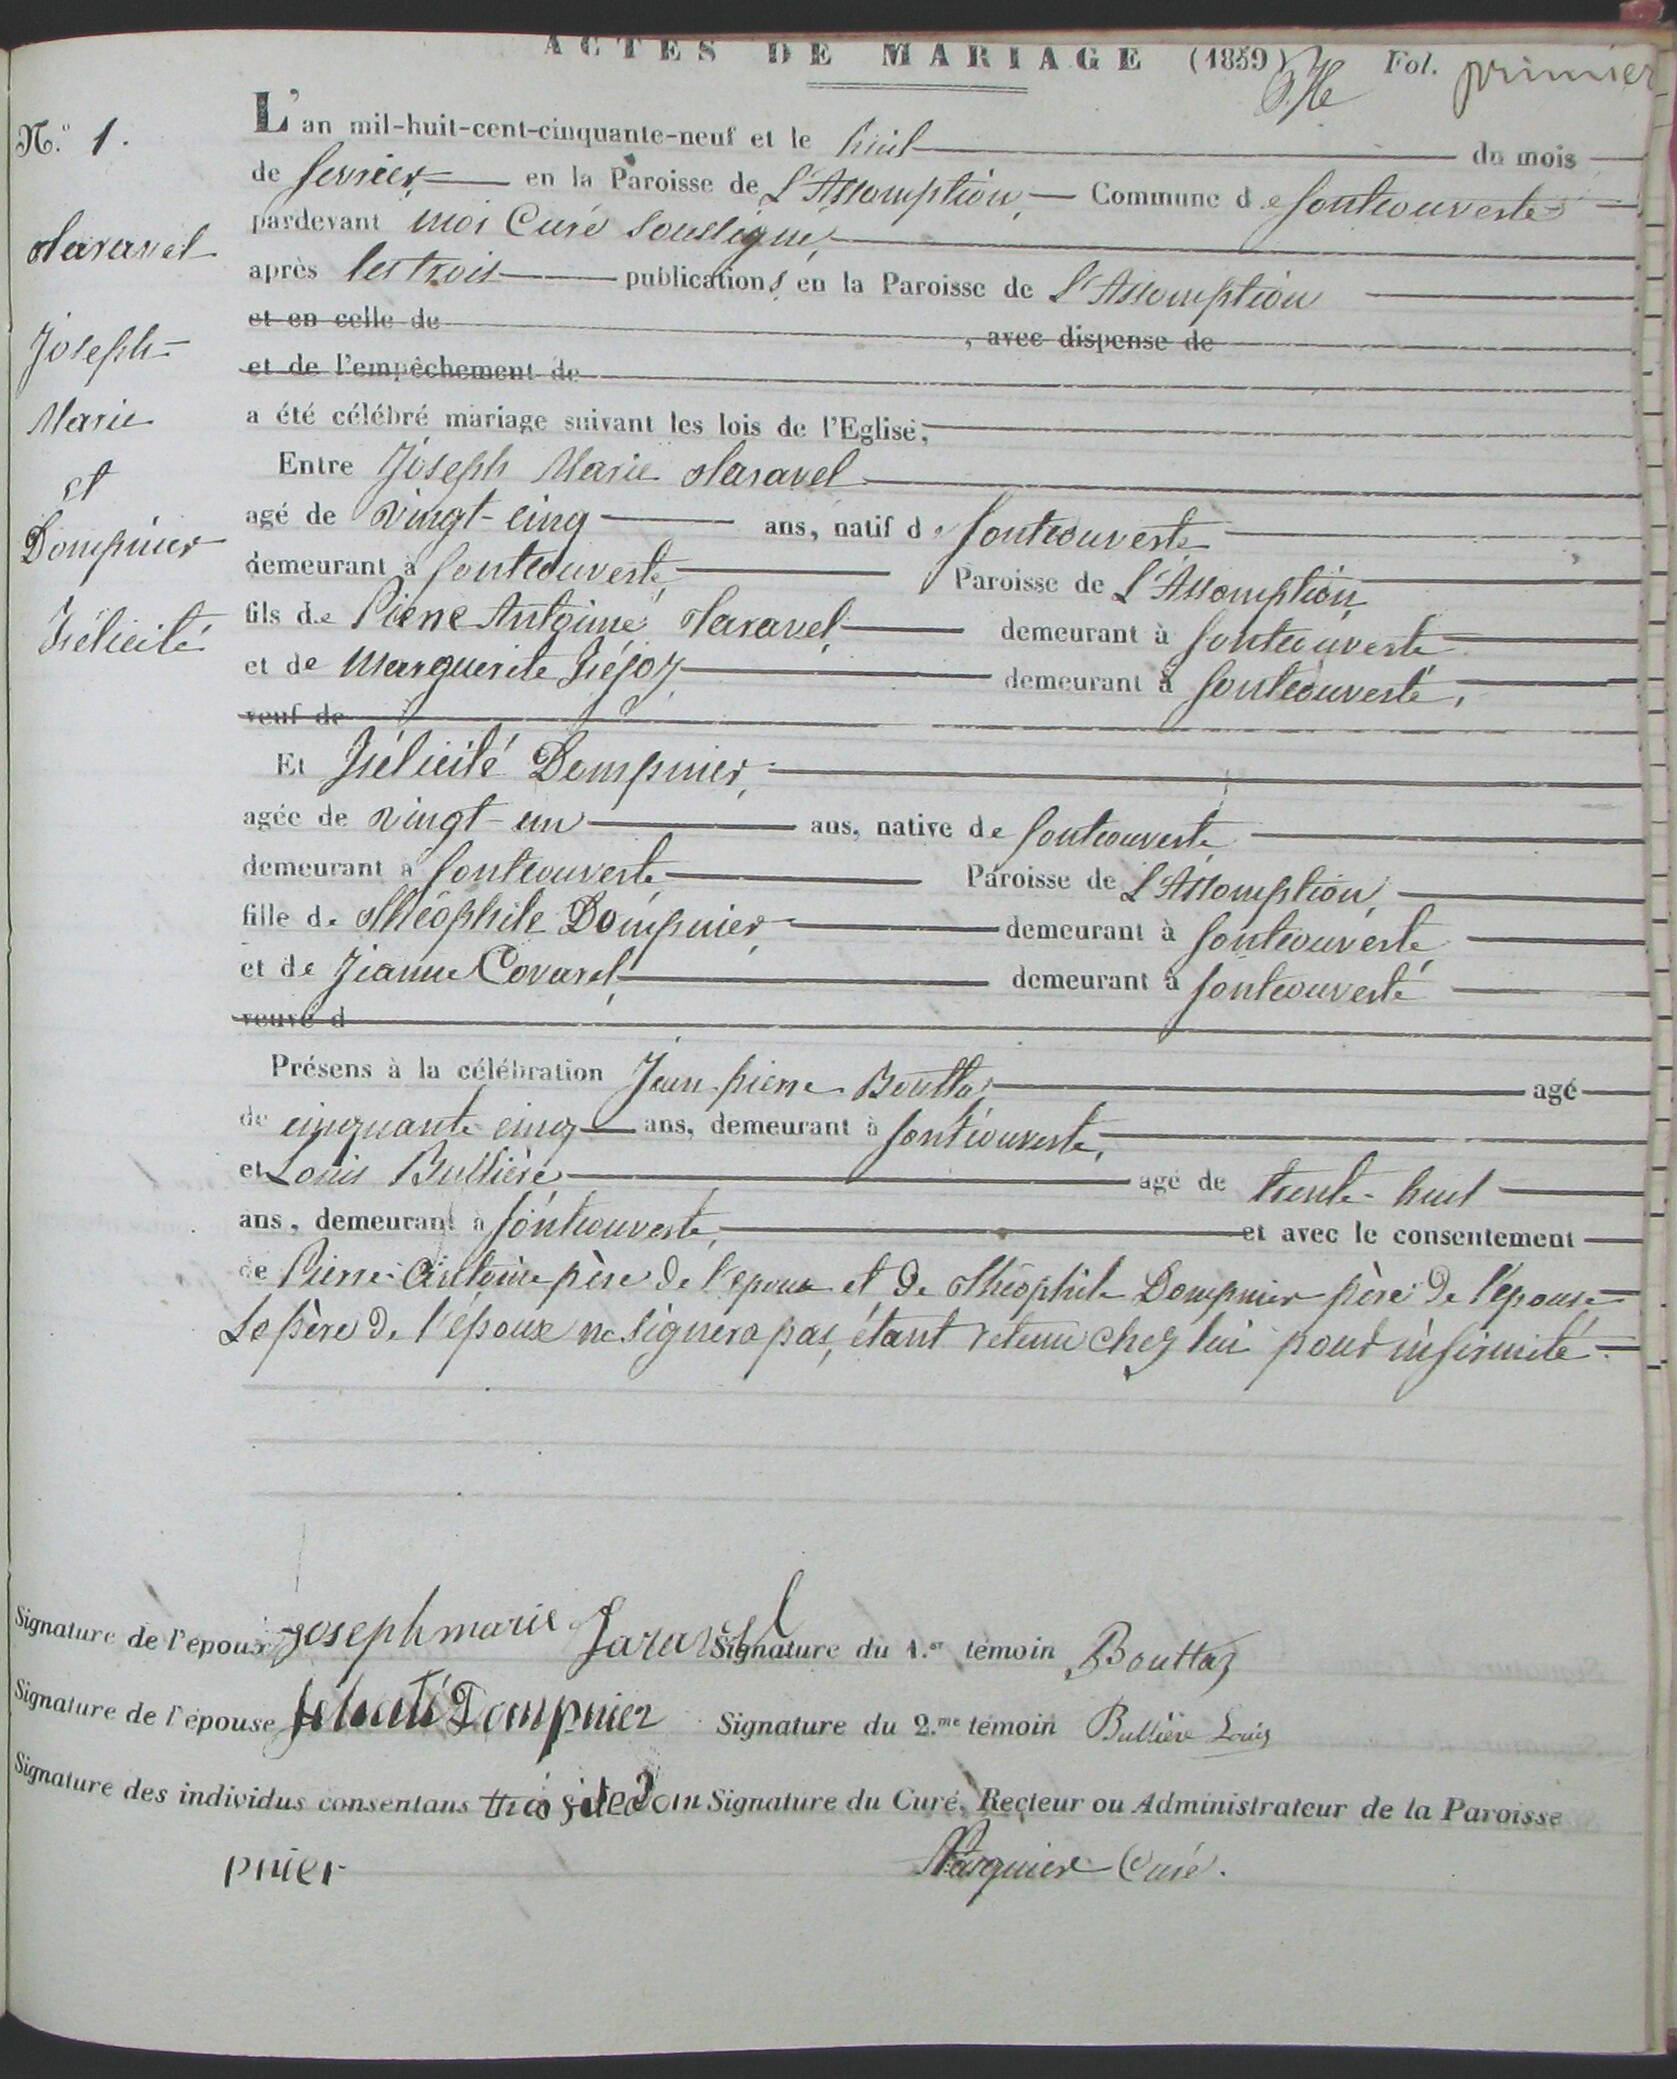 ACTES DE MARIAGE (1859) Fol. primier
N.º 1.
L'an mil-huit-cent-cinquante-neuf et le huit du mois
de fevrier en la Paroisse de L'Assomption Commune de fontcouverte
pardevant moi Curé soussigné,
après les trois publications en la Paroisse de L'Assomption
et en celle de , avec dispense de
et de l'empêchement de
a été célébré mariage suivant les lois de l'Eglise,
Entre Joseph Marie Taravel
agé de vingt-cinq ans, natif de fontcouverte
demeurant à fontcouverte, Paroisse de L'Assomption
fils de Pierre Antoine Taravel, demeurant à fontcouverte
et de Marguerite demeurant à fontcouverte,
veuf de
Et Félicité Dompnier,
agée de vingt-un ans, native de fontcouverte
demeurant à fontcouverte Paroisse de L'Assomption,
fille de Théophile Dompnier, demeurant à fontcouverte
et de Jeanne Covarel, demeurant à fontcouverte
veuve d
Présens à la célébration Jean-pierre Bouttaz agé
de cinquante cinq ans, demeurant à fontcouverte,
et Louis Bullière agé de trente-huit
ans, demeurant à fontcouverte, et avec le consentement
de Pierre-Antoine père de l'epoux et de Théophile Dompnier père de l'épouse
Le père de l'époux ne signera pas, étant retenu chez lui pour infirmité
Taravel
Joseph-
Marie
et
Dompnier
Félicité
Signature de l'epoux joseph marie Taravel Signature du 1.er temoin Bouttaz
Signature de l'épouse félicité Dompnier Signature du 2.me temoin Bullière Louis
Signature des individus consentans Dom Signature du Curé, Recteur ou Administrateur de la Paroisse
pnier Pasquier Curé.